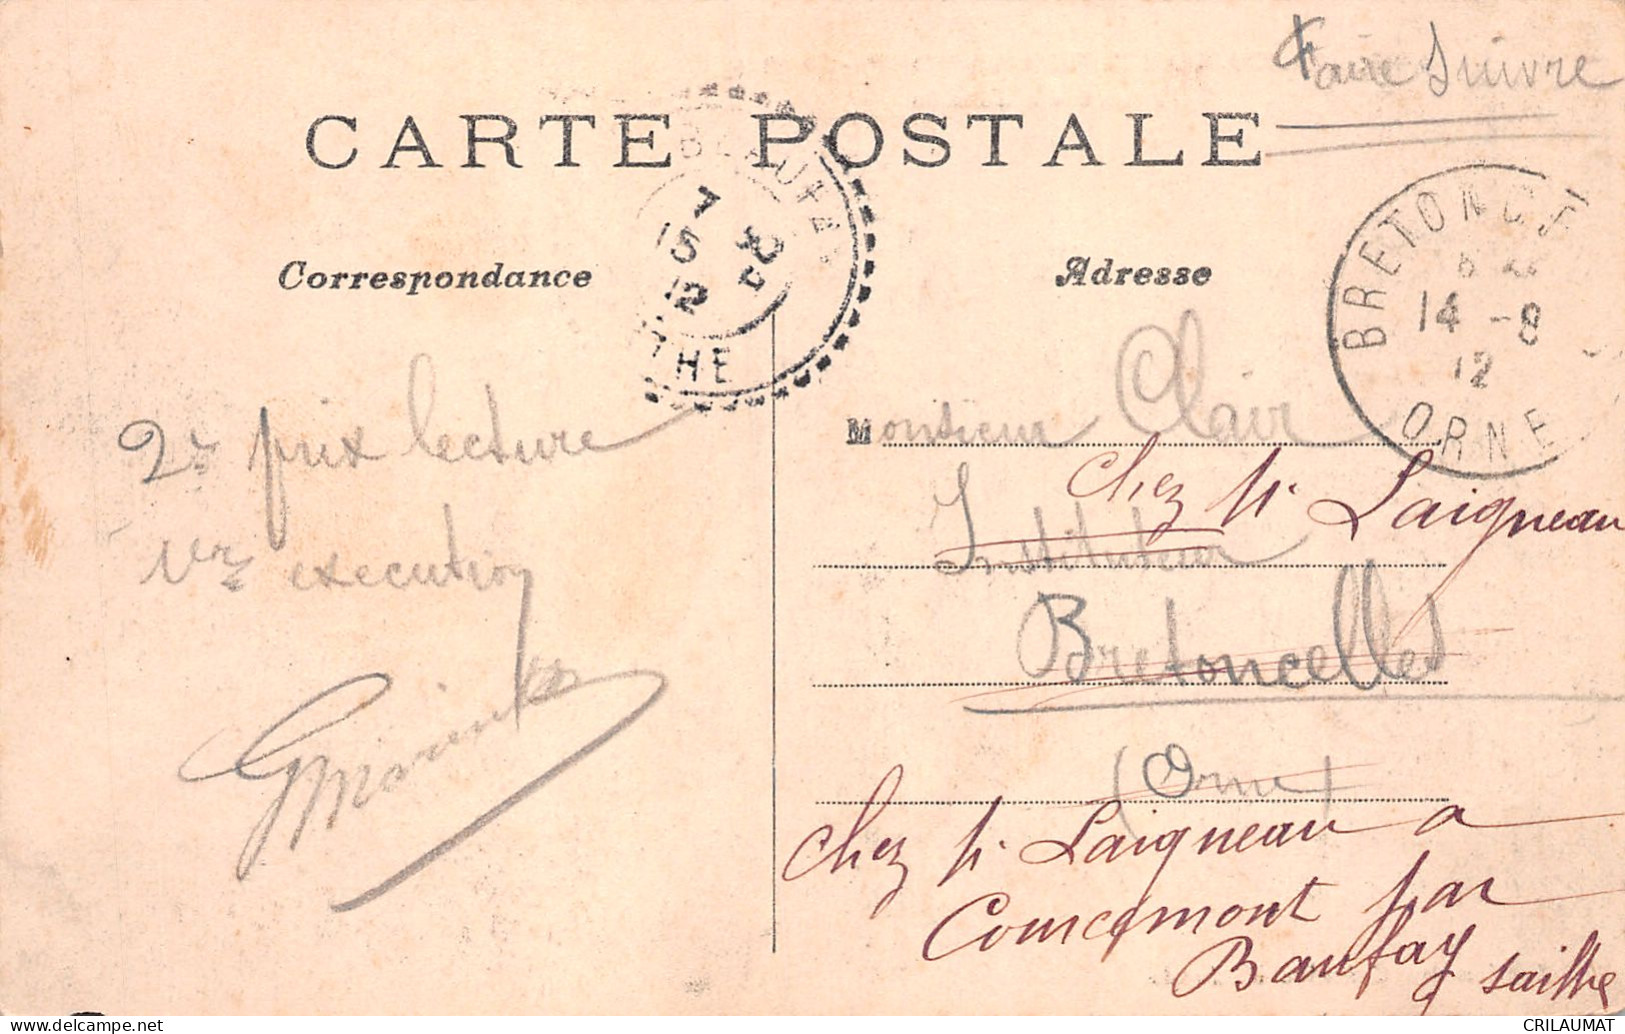 Faire Suivre
CARTE POSTALE
Correspondance
Adresse
7
15 8
12
THE
BRETONCE
14 - 8
12
ORNE
2e prix lecture
1er execution
Monsieur Clair
chez Mr Laigneau
Instituteur
Bretoncelles
(Orne)
chez Mr Laigneau a
Courcemont par
Baufay saithe
CRILAUMAT